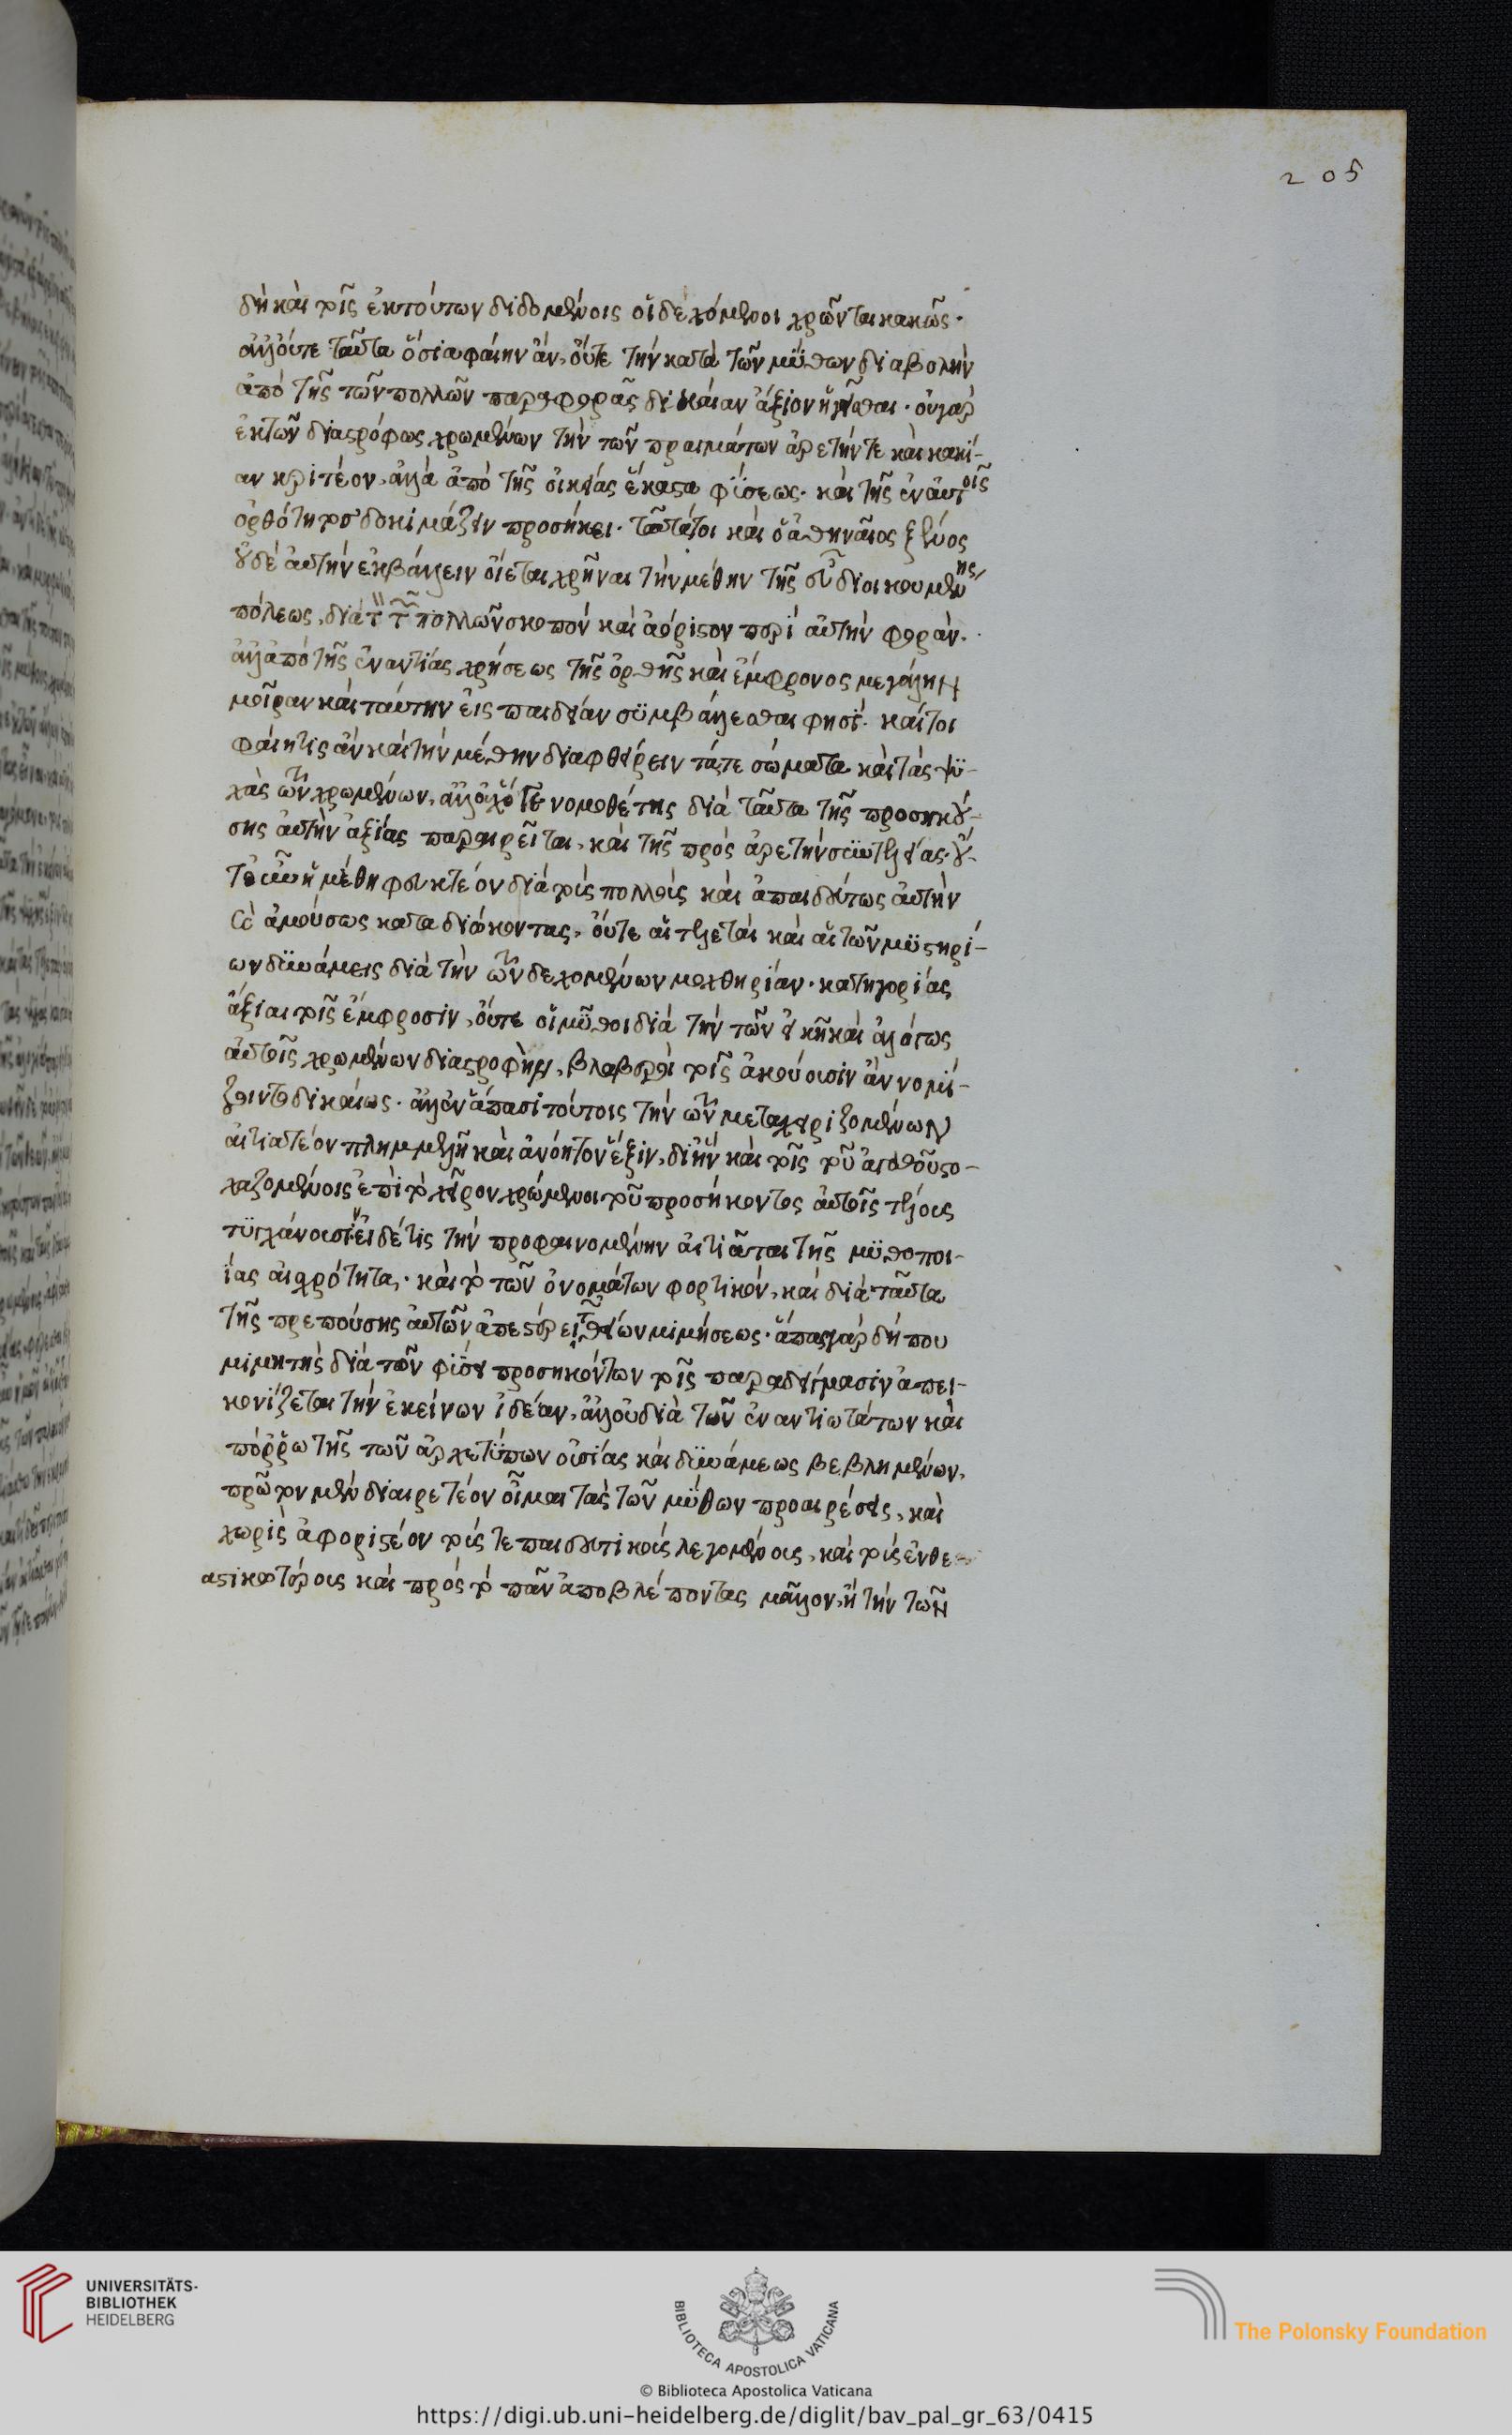 205
δὴ καὶ τοῖς ἐκ τούτων διδομένοις οἱ δεχόμενοι χρῶνται κακῶς·
ἀλλ' οὔτε ταῦτα ὅσια φαίην ἂν, οὔτε τὴν κατὰ τῶν μύθων διαβολὴν
ἀπὸ τῆς τῶν πολλῶν παραφορᾶς δικαίαν ἄξιον ἡγεῖσθαι· οὐ γὰρ
ἐκ τῶν διαστρόφως χρωμένων τὴν τῶν πραγμάτων ἀρετήν τε καὶ κακί-
αν κριτέον, ἀλλὰ ἀπὸ τῆς οἰκείας ἕκαστα φύσεως· καὶ τῆς ἐν αὐτοῖς
ὀρθότητος δοκιμάζειν προσήκει· ταῦτά τοι καὶ ὁ ἀθηναῖος ξένος
οὐδὲ αὐτὴν ἐκβάλλειν οἴεται χρῆναι τὴν μέθην τῆς εὖ διοικουμένης
πόλεως, διὰ τὴν τῶν πολλῶν σκοπὸν καὶ ἀόριστον περὶ αὐτὴν φορὰν·
ἀλλ' ἀπὸ τῆς ἐναντίας χρήσεως τῆς ὀρθῆς καὶ ἔμφρονος μεγάλην
μοῖραν καὶ ταύτην εἰς παιδείαν συμβάλλεσθαι φησί· καίτοι
φαίη τις ἂν καὶ τὴν μέθην διαφθείρειν τά τε σώματα καὶ τὰς ψυ-
χὰς τῶν χρωμένων, ἀλλ' οὐχ ὅ γε νομοθέτης διὰ ταῦτα τῆς προσηκού-
σης αὐτὴν ἀξίας παραιρεῖται, καὶ τῆς πρὸς ἀρετὴν συντελείας· οὔ-
τε οὖν ἡ μέθη φευκτέον διὰ τοὺς πολλοὺς καὶ ἀπαιδεύτως αὐτὴν
καὶ ἀμούσως καταδιώκοντας, οὔτε αἱ τελεταὶ καὶ αἱ τῶν μυστηρί-
ων δυνάμεις διὰ τὴν τῶν δεχομένων μοχθηρίαν· κατηγορίας
ἄξιαι τοῖς ἔμφροσιν, οὔτε οἱ μῦθοι διὰ τὴν τῶν εἰκῆ καὶ ἀλόγως
αὐτοῖς χρωμένων διαστροφὴν, βλαβεροὶ τοῖς ἀκούουσιν ἂν νομί-
ζοιντο δικαίως· ἀλλ' ἐν ἅπασι τούτοις τὴν τῶν μεταχειριζομένων
αἰτιατέον πλημμελῆ καὶ ἀνόητον ἕξιν, δι' ἣν καὶ τοῖς τοῦ ἀγαθοῦ στο-
χαζομένοις ἐπὶ τὸ χεῖρον χρώμενοι τοῦ προσήκοντος αὐτοῖς τέλους
τυγχάνουσιν εἰ δέ τις τὴν προφαινομένην αἰτιᾶται τῆς μυθοποι-
ίας αἰσχρότητα, καὶ τὸ τῶν ὀνομάτων φορτικόν, καὶ διὰ ταῦτα
τῆς πρεπούσης αὐτῶν ἀπεστέρει τῶν θείων μιμήσεως· ἅπας γὰρ δήπου
μιμητὴς διὰ τῶν φύσει προσηκόντων τοῖς παραδείγμασιν ἀπει-
κονίζεται τὴν ἐκείνων ἰδέαν, ἀλλ' οὐ διὰ τῶν ἐναντιωτάτων καὶ
πόρρω τῆς τῶν ἀρχετύπων οὐσίας καὶ δυνάμεως βεβλημένων,
πρῶτον μὲν διαιρετέον οἶμαι τὰς τῶν μύθων προαιρέσεις, καὶ
χωρὶς ἀφοριστέον τούς τε παιδευτικοὺς λεγομένους, καὶ τοὺς ἐνθε-
αστικωτέρους καὶ πρὸς τὸ πᾶν ἀποβλέποντας μᾶλλον, ἢ τὴν τῶν
UNIVERSITÄTS-
BIBLIOTHEK
HEIDELBERG
BIBLIOTECA APOSTOLICA VATICANA
The Polonsky Foundation
© Biblioteca Apostolica Vaticana
https://digi.ub.uni-heidelberg.de/diglit/bav_pal_gr_63/0415